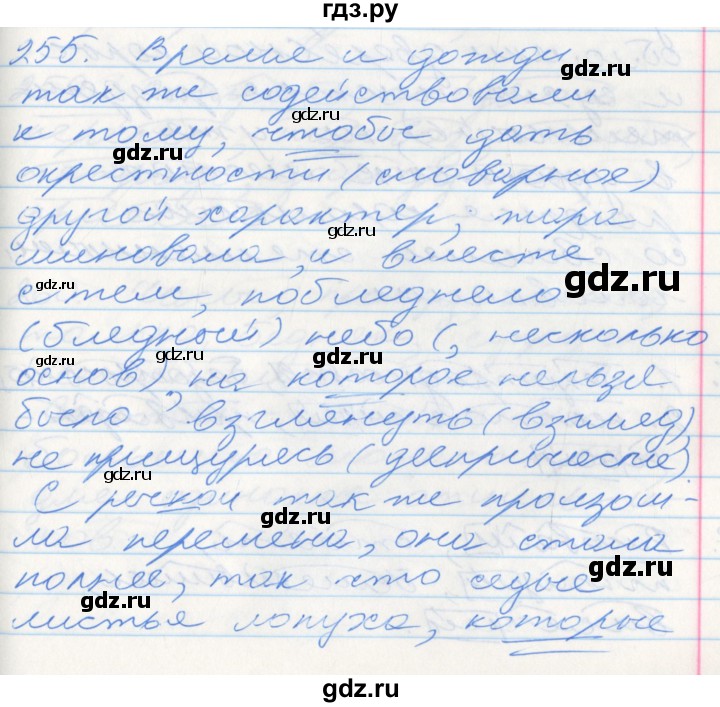 гдз.ру
255. Время и дожди
так же содействовали
к тому, чтобы дать
окрестности (словарное)
другой характер; жара
миновала, и вместе
с тем, побледнело
(бледный) небо (, несколько
основ), на которое нельзя
было взглянуть (взгляд),
не прищурясь (деепричастие).
С рекой так же произош-
ла перемена, она стала
полнее, так что седые
листья лопуха, которые
gdz.ru
gdz.ru
gdz.ru
gdz.ru
gdz.ru
gdz.ru
gdz.ru
gdz.ru
gdz.ru
gdz.ru
gdz.ru
gdz.ru
gdz.ru
gdz.ru